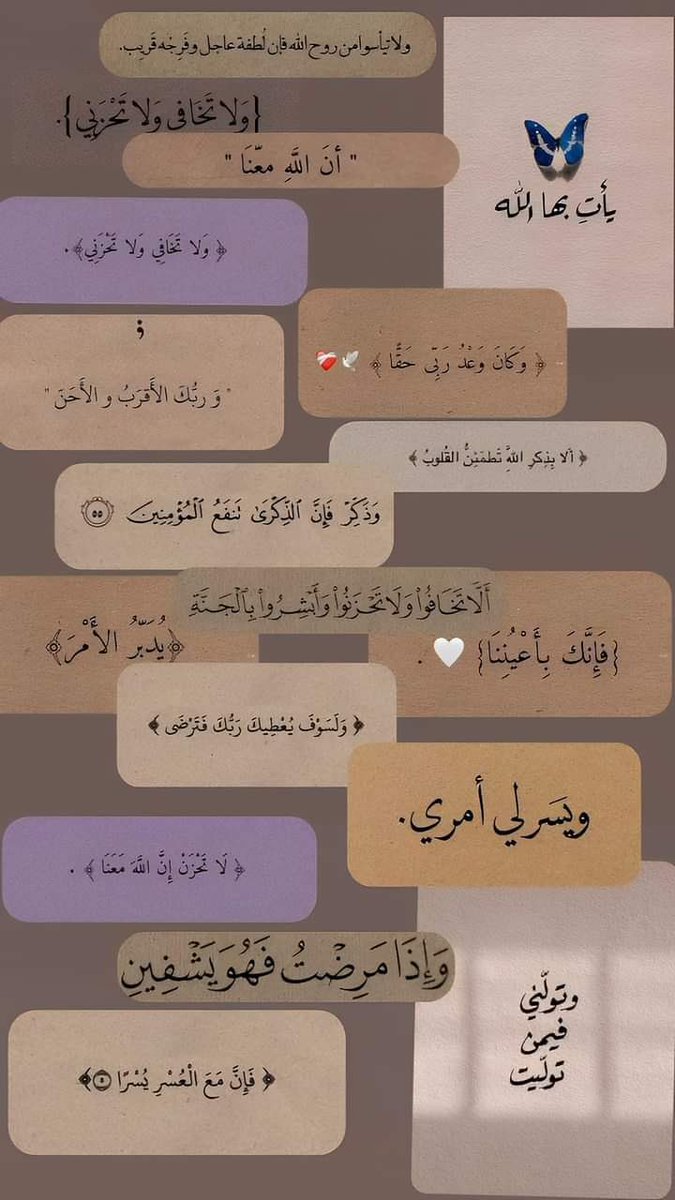 ولا تيأسوا من روح الله فإن لُطفة عاجل وفَرجُه قَريب.
{وَلا تَخَافى وَلا تَحْزَنِي}.
" أنَ اللَّهِ معّنَا "
يأتِ بها الله
﴿ وَلا تَخَافِي وَلا تَحْزَنِي﴾.
؛
﴿ وَكَانَ وَعْدُ رَبِّى حَقًّا ﴾ 🕊❤️‍🩹
" وَ ربُّكَ الأَقرَبُ و الأَحَنَ "
﴿ ألا بِذِكرِ اللَّهِ تَطمَئِنُّ القُلوبُ ﴾
وَذَكِّرۡ فَإِنَّ ٱلذِّكۡرَىٰ تَنفَعُ ٱلۡمُؤۡمِنِينَ ٥٥
أَلَّا تَخَافُوا۟ وَلَا تَحۡزَنُوا۟ وَأَبۡشِرُوا۟ بِٱلۡجَنَّةِ
﴿يُدَبِّرُ الأَمْرَ﴾
{فَإِنَّكَ بِأَعْيُنِنَا} 🤍 .
﴿ وَلَسَوْفَ يُعْطِيكَ رَبُّكَ فَتَرْضَى ﴾
ويَسَر لي أمري.
﴿ لَا تَحْزَنْ إِنَّ اللَّهَ مَعَنَا ﴾ .
وَإِذَا مَرِضۡتُ فَهُوَ يَشۡفِينِ
وتولّني
فيمن
تولّيت
﴿ فَإِنَّ مَعَ الْعُسْرِ يُسْرًا ٥﴾